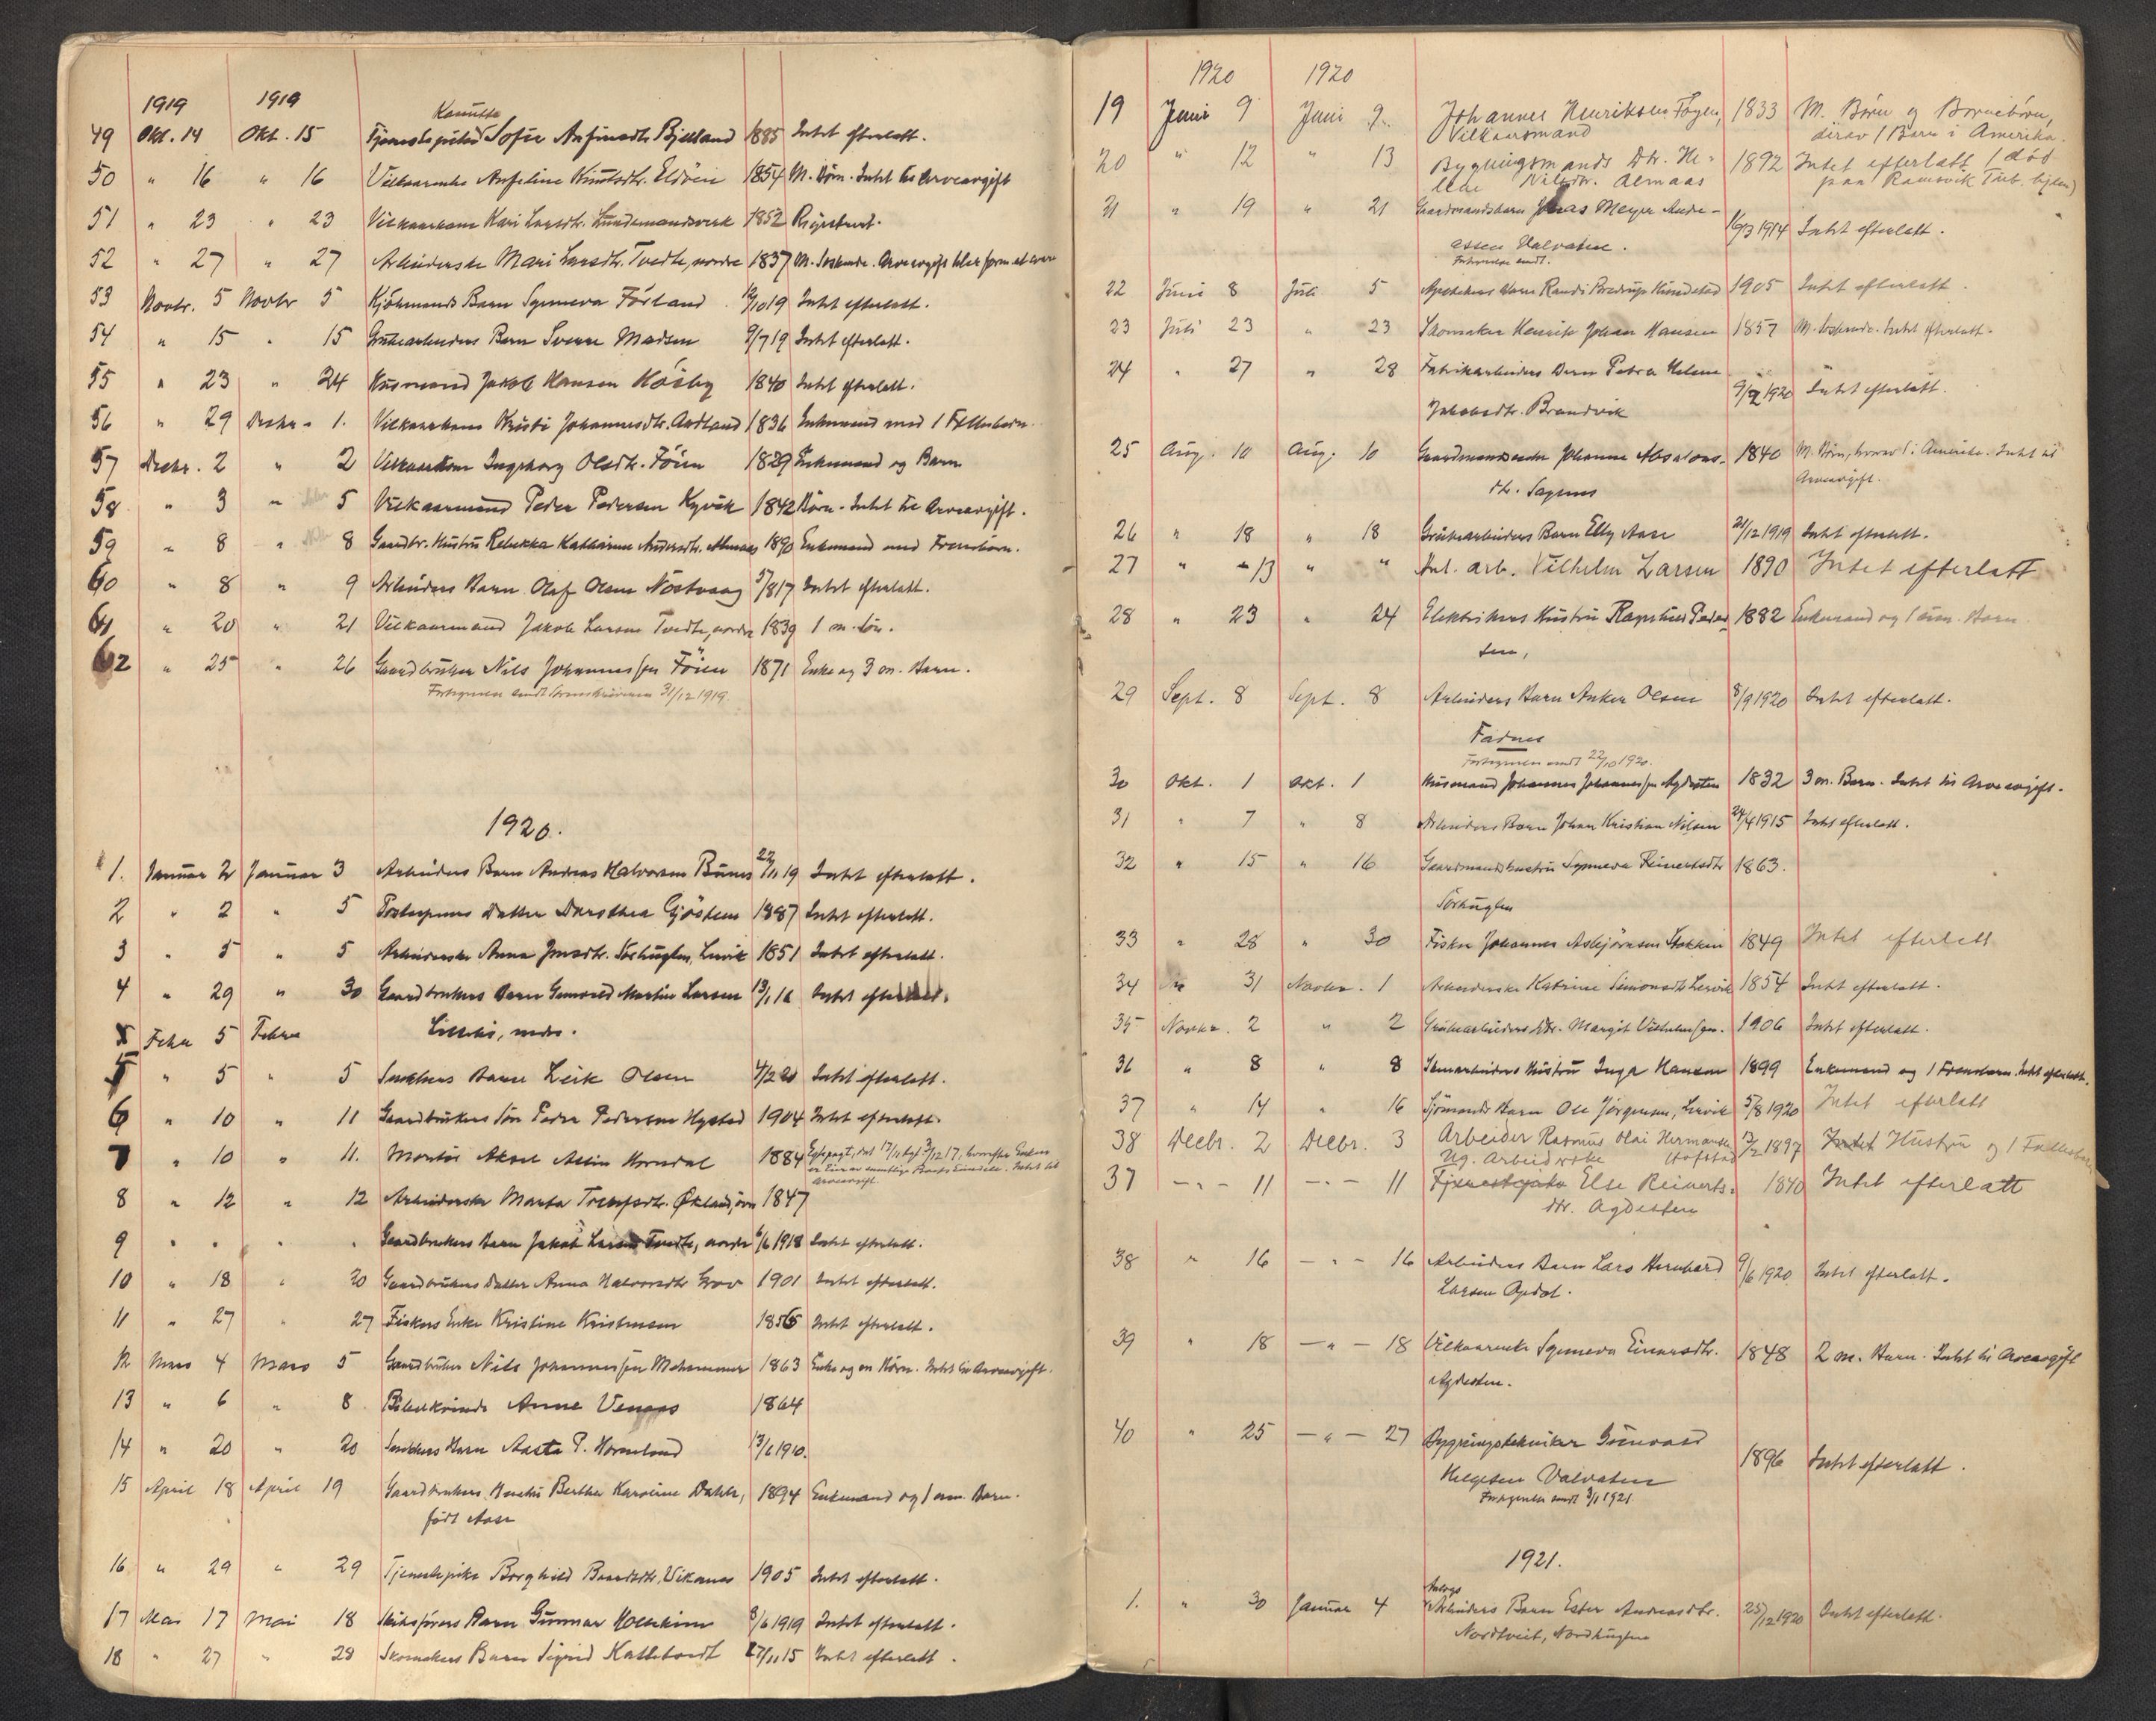 1919 1919
Kanutte
49 Okt. 14 Okt. 15 Tjenestepike Sofie Anfinsdtr. Bjelland 1885 Intet efterlatt.
50 " 16 " 16 Vilkaarenke Anfeline Knutsdtr. Eldöen 1854 M. Börn. Intet til Arveavgift
51 " 23 " 23 Vilkaarkone Kari Larsdtr. 1852
52 " 27 " 27 Arbeiderske Mari Larsdtr. Tvedte, nordre 1837 M. Söskende. Arveavgift
53 Novbr. 5 Novbr 5 Barn Synneva Förland 12/10 19 Intet efterlatt.
54 " 15 " 15 Grubearbeiders Barn Sverre Madsen 9/7 19 Intet efterlatt.
55 " 23 " 24 Husmand Jakob Hansen Høiby 1840 Intet efterlatt.
56 " 29 Decbr. 1. Vilkaarkone Kristi Johannesdtr. Aadland 1836 Enkemand med 1 Fellesbarn.
57 Decbr. 2 " 2 Vilkaarkone Ingeborg Olsdtr. Föien 1829 Enkemand og Barn
58 " 3 " 5 Vilkaarmand Peder Pedersen Kyvik 1842 Börn. Intet til Arveavgift.
59 " 8 " 8 Gaardbr. Hustru Rebekka Katharine Andersdtr. Almaas 1890 Enkemand med Fremborn.
60 " 8 " 9 Arbeiders Barn Olaf Olsen Nöstvaag 5/8 17 Intet efterlatt.
61 " 20 " 21 Vilkaarmand Jakob Larsen Tvedte, nordre 1839 1 m. Sön.
62 " 25 " 26 Gaardbruker Nils Johannessen Föien 1871 Enke og 3 m. Barn.
Fortegnelse sendt Sorenskriveren 31/12 1919.
1920.
1. Januar 2 Januar 3 Arbeiders Barn Andreas Halvorsen Bünes 22/11 19 Intet efterlatt.
2 " 2 " 5 Datter Dorothea Gjöstein 1887 Intet efterlatt.
3 " 5 " 5 Arbeiderske Anna Jonsdtr. Sörhuglen, Lervik 1851 Intet efterlatt.
4 " 29 " 30 Gaardbrukers Barn Gunvald Martin Larsen 13/1 16 Intet efterlatt.
5 Febr 5 Febr Littlebö, nedre.
5 " 5 " 5 Snekkers Barn Leik Olsen 4/2 20 Intet efterlatt.
6 " 10 " 11 Gaardbrukers Sön Peder Pedersen Hystad 1904 Intet efterlatt.
7 " 10 " 11. Montör Aksel Horndal 1884
8 " 12 " 12 Arbeiderske Marta Økland, övre 1847
9 " " " " Gaardbrukers Barn Jakob Larsen Tvedte, nordre 6/6 1918 Intet efterlatt.
10 " 18 " 20 Gaardbrukers Datter Anna Halvorsdtr. 1901 Intet efterlatt.
11 " 27 " 27 Fiskers Enke Kristine Kristensen 1856 Intet efterlatt.
12 Mars 4 Mars 5 Gaardbruker Nils Johannessen Mehammer 1863 Enke og m Börn. Intet til Arveavgift.
13 " 6 " 8 Bibelkvinde Anne Venaas 1864
14 " 20 " 20 Snekkers Barn Aasta P. Horneland 13/6 1910.
15 April 18 April 19 Gaardbrukers Hustru Berthe Karoline Dahle, 1894 Enkemand og 1 um. Barn.
født Aase
16 " 29 " 29 Tjenestepike Borghild Baardsdtr. Vikanes 1905 Intet efterlatt.
17 Mai 17 Mai 18 Barn Gunnar 3/6 1919 Intet efterlatt.
18 " 27 " 28 Skomakers Barn Sigrid Kallekodt 27/11 15 Intet efterlatt.
1920 1920
19 Juni 9 Juni 9. Johannes Henriksen Føyen, 1833 M. Børn og Bornebörn,
Vilkaarsmand derav 1 Barn i Amerika.
20 " 12 " 13 Bygningsmands Dtr. He- 1892 Intet efterlatt (død
lene Nilsdtr. Almaas paa Ravnevik Tub. hjem)
21 " 19 " 21 Gaardmandsbarn Jonas Meyer Andre-
assen Valvatne. 16/3 1914 Intet efterlatt.
Fortegnelse sendt.
22 Juni 8 Juli 5 Apotekers Barn Randi 1905 Intet efterlatt.
23 Juli 23 " 23 Skomaker Henrik Johan Hansen 1857 M. Söskende. Intet efterlatt.
24 " 27 " 28 Fabrikarbeiders Barn Petra Helene
Jakobsdtr. Brandvik 9/2 1920 Intet efterlatt.
25 Aug. 10 Aug. 10 Gaardmandsenke Johanne Absalons- 1840 M. Börn, hvorav 1 i Amerika. Intet til
dtr. Sagvns Arveavgift.
26 " 18 " 18 Grubearbeiders Barn Elly Aase 21/12 1919 Intet efterlatt.
27 " -13 " " Anl. arb. Vilhelm Larsen 1890 Intet efterlatt
28 " 23 " 24 Elektrikers Hustru Ragnhild Peder- 1882 Enkemand og 1 um. Barn.
sen,
29 Sept. 8 Sept. 8 Arbeiders Barn Anker Olsen 8/9 1920 Intet efterlatt.
Fadnes
Fortegnelse sendt 22/10 1920.
30 Okt. 1 Okt. 1 Husmand Johannes Johannessen Agdesten 1832 3 m. Barn. Intet til Arveavgift.
31 " 7 " 8 Arbeiders Barn Johan Kristian Nilsen 24/4 1915 Intet efterlatt.
32 " 15 " 16 Gaardmandshustru Synneva Reinertsdtr 1863.
Sörhuglen
33 " 28 " 30 Fisker Johannes Asbjörnsen Stokken 1849 Intet efterlatt
34 31 Novbr. 1 Arbeiderske Katrine Simonsdtr. Lervik 1854 Intet efterlatt.
35 Novbr. 2 " 2 Grubearbeiders Dtr. Margit Vilhelmsen. 1906 Intet efterlatt.
36 " 8 " 8 Hustru Inga Hansen 1899 Enkemand og 1 Frembarn. Intet efterlatt.
37 " 14 " 16 Sjömands Barn Ole Jörgensen, Lervik 5/8 1920 Intet efterlatt
38 Decbr. 2 Decbr. 3 Arbeider Rasmus Olai Hermansen 13/2 1897 Intet Hustru og 1 Fellesbarn
Ug. Arbeiderske Hofstad
37 - " - 11 - " - 11 Tjenestejente Else Reinerts- 1840 Intet efterlatt
dtr. Agdesten
38 " 16 - " - 16 Arbeiders Barn Lars Bernhard 9/6 1920 Intet efterlatt.
Larsen Opdal.
39 " 18 - " - 18 Vilkaarenke Synneva Einarsdtr. 1848 2 m. Barn. Intet til Arveavgift
Agdesten.
40 " 25 - " - 27 Bygningstekniker
Helgesen Valvatne 1896 Intet efterlatt.
Fortegnelse sendt 3/1 1921.
1921.
Anlegs
1. " 30 Januar 4 Arbeiders Barn Ester Andreasdtr. 25/12 1920 Intet efterlatt.
Nordtveit, Nordhuglen